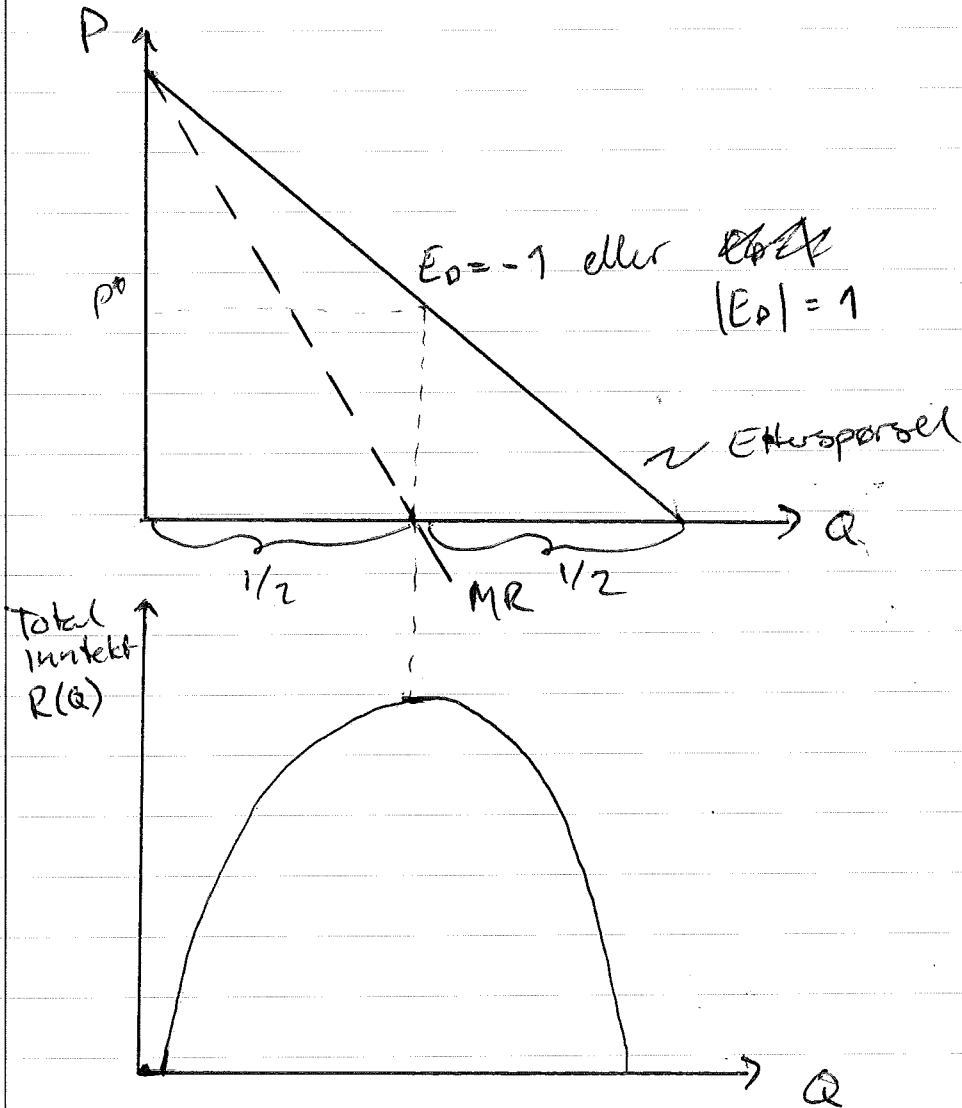 P
E_D = -1 eller
|E_D| = 1
P*
Etterspørsel
Q
1/2
1/2
MR
Total
Inntekt
R(Q)
Q